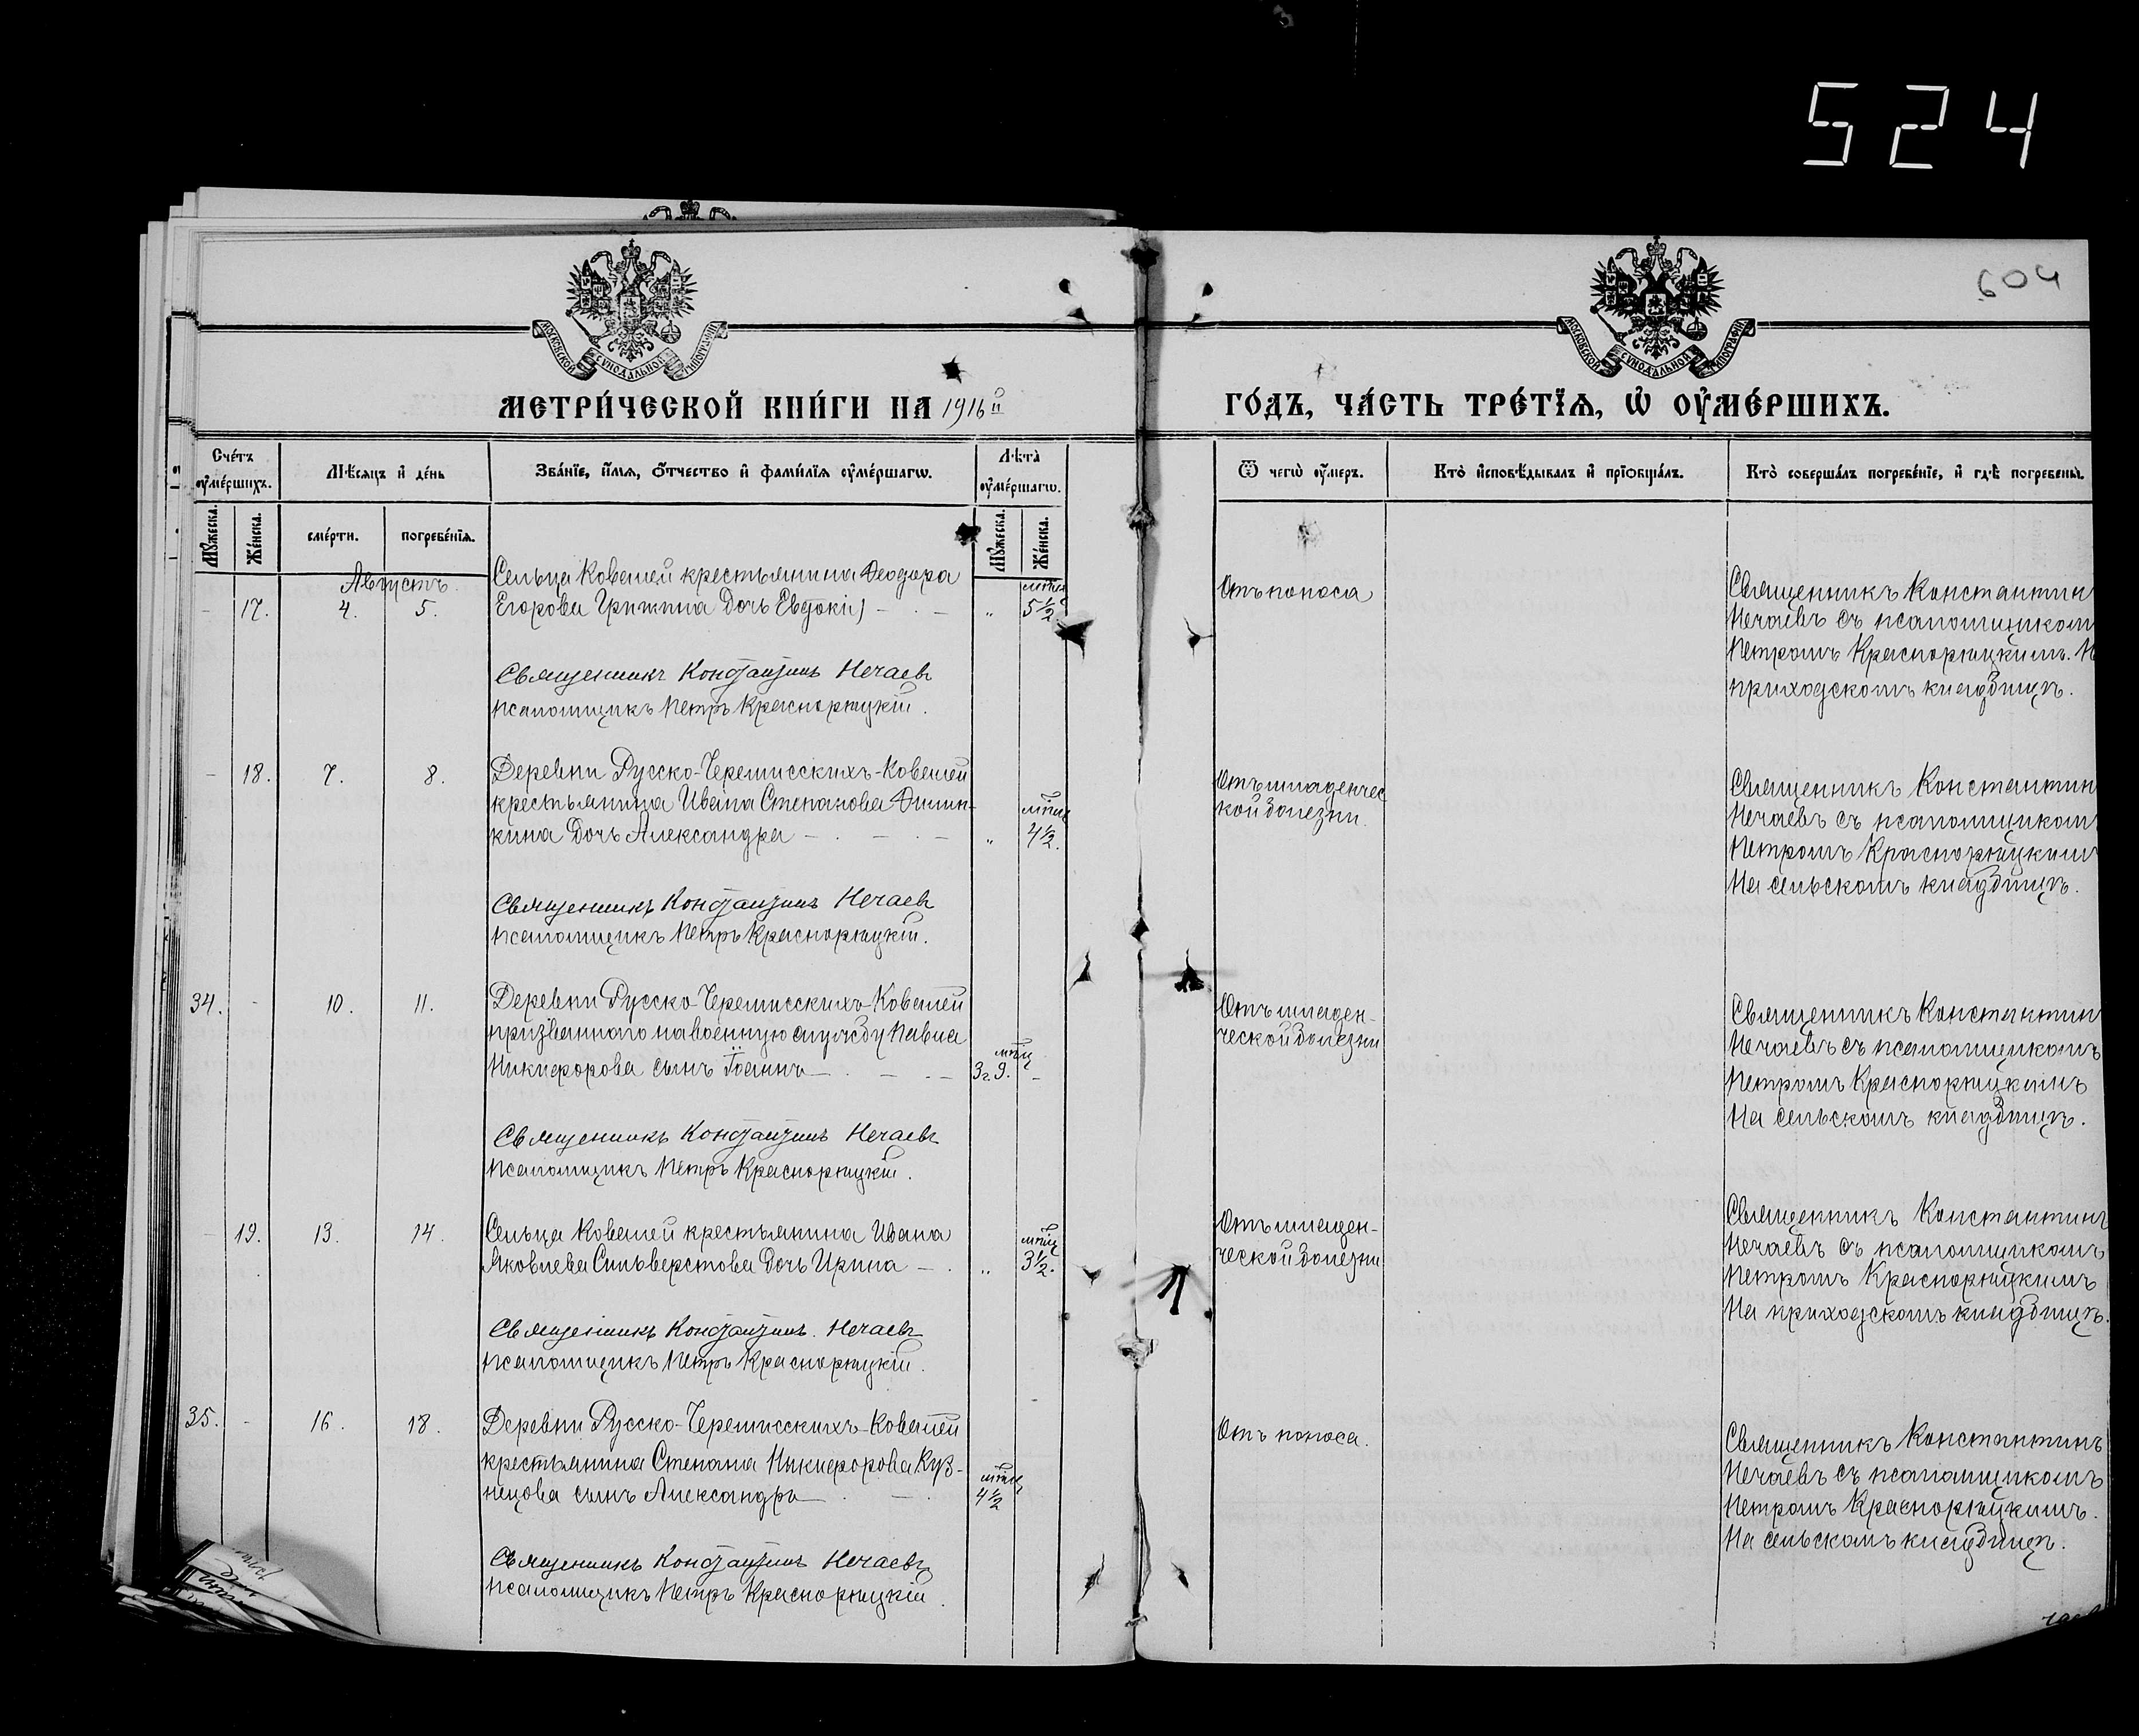 524
604
МОСКОВСКОЙ СУНОДАЛЬНОЙ ТИПОГРАФІИ
МОСКОВСКОЙ СУНОДАЛЬНОЙ ТИПОГРАФІИ
МЕТРИ́ЧЕСКОЙ КНИ́ГИ НА 1916й
ГО́ДЪ, ЧА́СТЬ ТРЕ́ТЇѦ, Ѡ ОУ҆МЕ́РШИХЪ.
Сче́тъ оу҆ме́ршихъ.
Мѣ́сяцъ и҆ де́нь
Зва́нїе, и҆́мѧ, ѻ҆́тчество и҆ фами́лїѧ оу҆ме́ршагѡ.
Лѣ́та оу҆ме́ршагѡ.
Ѿ чегѡ̀ оу҆́меръ.
Кто̀ и҆сповѣ́дывалъ и҆ прїѡбща́лъ.
Кто̀ соверша́лъ погребе́нїе, и҆ гдѣ̀ погребены̀.
Мꙋ́жеска.
Же́нска.
сме́рти.
погребе́нїѧ.
Мꙋ́жеска.
Же́нска.
Августъ.
- 17. 4. 5.
Сельца Ковашей крестьянина Ѳеодора
Егорова Гришина дочь Евдокія - . -
„ мѣсяц 5½
Отъ поноса
Священникъ Константин
Нечаевъ съ псаломщиком
Петромъ Краснорюцкимъ. Н
приходскомъ кладбищѣ.
Священникъ Константинъ Нечаевъ
Псаломщикъ Петръ Краснорюцкій.
- 18. 7. 8.
Деревни Русско-Черемисскихъ-Ковашей
крестьянина Ивана Степанова Димит-
кина дочь Александра - . - . -
„ мѣсяц 4½.
Отъ младенчес
кой болезни.
Священникъ Константин
Нечаевъ съ псаломщиком
Петромъ Краснорюцким
На сельскомъ кладбищѣ.
Священникъ Константинъ Нечаевъ
Псаломщикъ Петръ Краснорюцкій.
34. - 10. 11.
Деревни Русско-Черемисскихъ-Ковашей
призваннаго на военную службу Павла
Никифорова сынъ Іоаннъ - . - . -
3 г. 9. мѣсяц -
Отъ младен-
ческой болезни
Священникъ Константин
Нечаевъ съ псаломщикомъ
Петромъ Краснорюцкимъ
На сельскомъ кладбищѣ.
Священникъ Константинъ Нечаевъ
Псаломщикъ Петръ Краснорюцкій.
- 19. 13. 14.
Сельца Ковашей крестьянина Ивана
Яковлева Сильверстова дочь Ирина - .
„ мѣсяц 3½.
Отъ младен-
ческой болезни
Священникъ Константинъ
Нечаевъ съ псаломщикомъ
Петромъ Краснорюцкимъ
На приходскомъ кладбищѣ.
Священникъ Константинъ. Нечаевъ
Псаломщикъ Петръ Краснорюцкій.
35. - 16. 18.
Деревни Русско-Черемисскихъ-Ковашей
крестьянина Степана Никифорова Куз-
нецова сынъ Александръ - . - .
мѣсяц 4½
Отъ поноса.
Священникъ Константинъ
Нечаевъ съ псаломщикомъ
Петромъ Краснорюцкимъ.
На сельскомъ кладбищѣ.
Священникъ Константинъ Нечаевъ
Псаломщикъ Петръ Краснорюцкій.